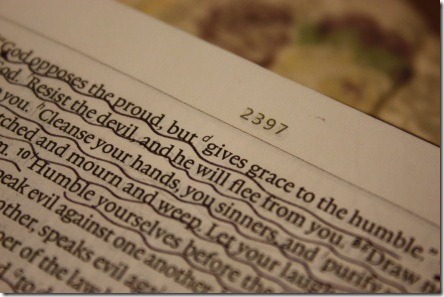 2397
"God opposes the proud, but d gives grace to the humble."
God. Resist the devil, and he will flee from you. 8 Draw
you. h Cleanse your hands, you sinners, and purify
tched and mourn and weep. Let your laugh
n. 10 Humble yourselves before the
eak evil against one another
other, speaks evil agai
er of the law